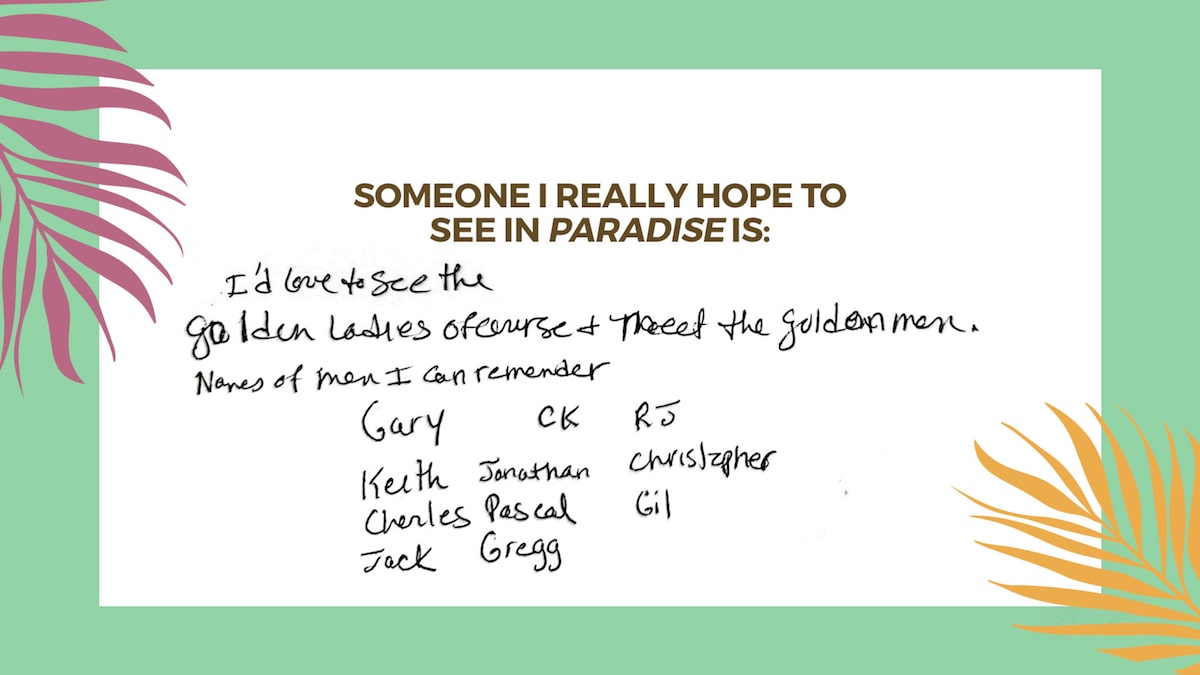 SOMEONE I REALLY HOPE TO
SEE IN PARADISE IS:
I'd love to see the
golden ladies of course + meet the golden men.
Names of men I can remember
Gary CK RJ
Keith Jonathan Christopher
Charles Pascal Gil
Jack Gregg